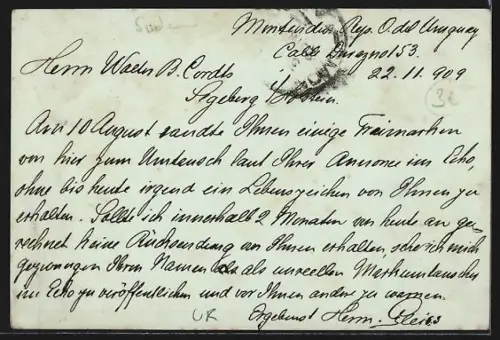 Montevideo Rep. O. del Uruguay
Calle Durazno 153.
Herrn Walter B. Cordts
22.11.909
Segeberg Holstein.
Am 10 August sandte Ihnen einige Freimarken
von hier zum Umtausch laut Ihrer Annonce im Echo,
ohne bis heute irgend ein Lebenszeichen von Ihnen zu
erhalten. Sollte ich innerhalb 2 Monaten von heute an ge-
rechnet keine Rücksendung von Ihnen erhalten, sehe ich mich
gezwungen Ihren Namen als unreellen Markentauscher
im Echo zu veröffentlichen und vor Ihnen andere zu warnen.
Ergebenst Herm.
UR